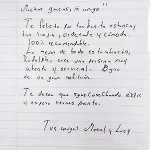 Muchas gracias, amigo!!
Te felicito por tu estancia,
tan limpia, ordenada y cómoda.
100% recomendable.
Lo mejor de toda es la estancia,
Rodolfo eres una persona muy
atenta y servicial. Digno
de un gran anfitrión.
Te deseo que sigas cosechando éxitos
y espero vernos pronto.
Tus amigos Moral y Lucy